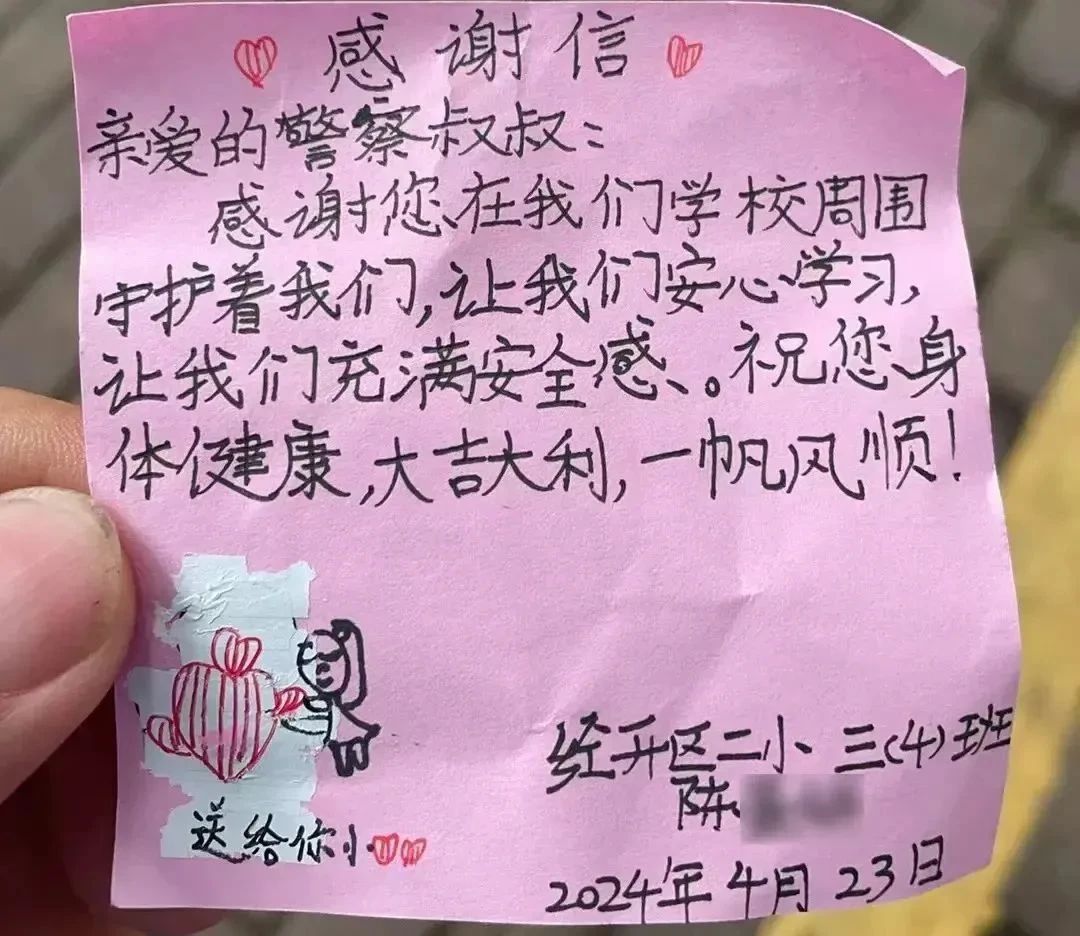 感谢信
亲爱的警察叔叔：
感谢您在我们学校周围
守护着我们，让我们安心学习，
让我们充满安全感、。祝您身
体健康，大吉大利，一帆风顺！
送给你小
经开区二小 三（4）班
陈
2024年4月23日